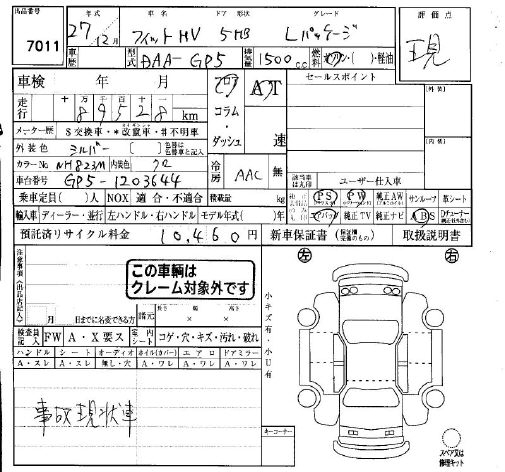 出品番号 年式 車名 ドア 形状 グレード 評価点
7011 27年12月 フィットHV 5HB Lパッケージ 現
車歴 型式 DAA-GP5 排気量 1500cc 燃料 ガソリン・( )・軽油
車検 年 月 フロア AT セールスポイント
走行 十 万 千 百 十 89528 km コラム・ダッシュ 速
メーター歴 $交換車・*改ざん車・#不明車
外装色 シルバー [ ] 色替は色替車と記入 冷房 AAC 無
カラーNo NH823M 内装色 クロ
車台番号 GP5-1203644 ユーザー仕入車
乗車定員( )人 NOX 適合・不適合 積載量 kg PS PW 純正AW サンルーフ 革シート
輸入車 ディーラー・並行 左ハンドル・右ハンドル モデル年式( )年 エアバッグ 純正TV 純正ナビ ABS
預託済リサイクル料金 10,460 円 新車保証書 取扱説明書
注意事項(出品店記入) この車輌は
クレーム対象外です
左 右
月 日までに名変できる 諸元 長さ 幅 高さ
小キズ有・小U有
検査員記入 FW A・X要ス 室内シート コゲ・穴・キズ・汚れ・破れ
ハンドル シート オーディオ ホイル(カバー) エアロ ドアミラー
A・スレ A・スレ 無し・穴 A・ワレ A・ワレ A・ワレ
事故現状車
キーコーナー
スペア又は
修理キット